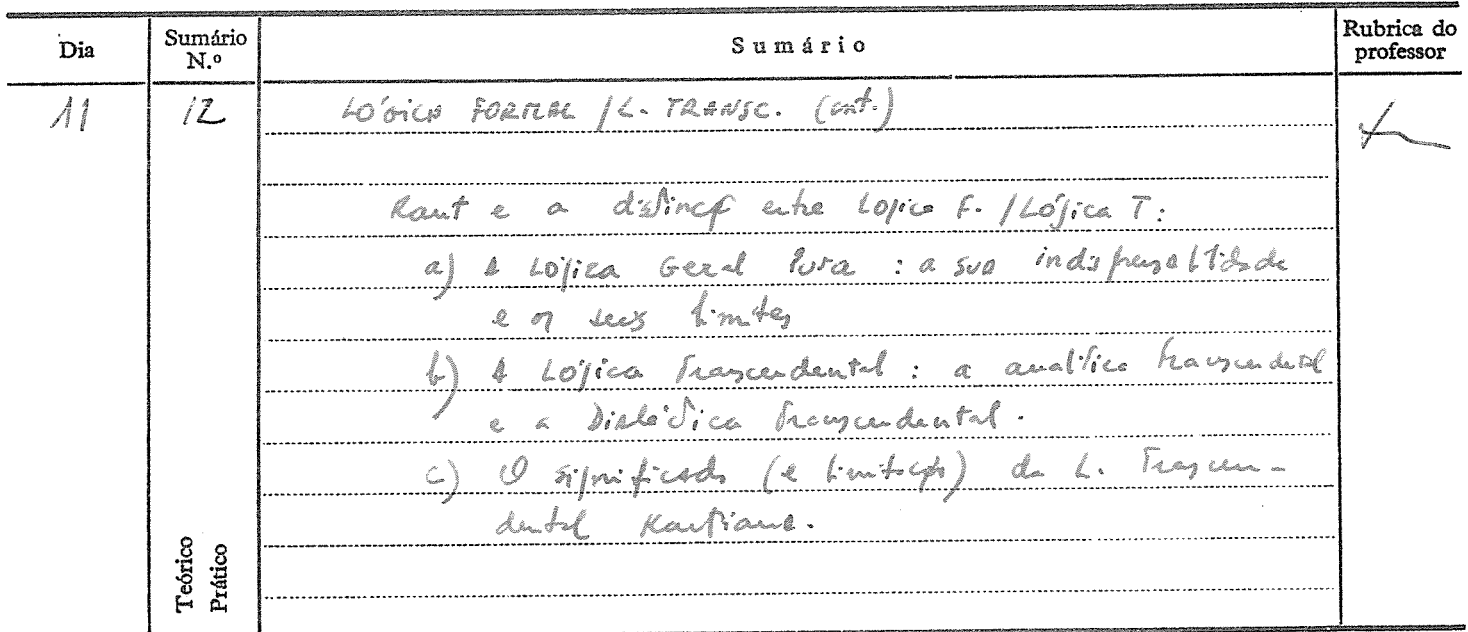 Dia Sumário N.º Sumário Rubrica do professor
11 12 LÓGICA FORMAL / L. TRANSC. (cont.)
Kant e a distinção entre Lógica F. / Lógica T:
a) A Lógica Geral Pura : a sua indispensabilidade
e os seus limites
b) A Lógica Transcendental : a analítica transcendental
e a Dialéctica Transcendental.
c) O significado (e limitações) da L. Transcen-
dental Kantiana.
Teórico
Prático